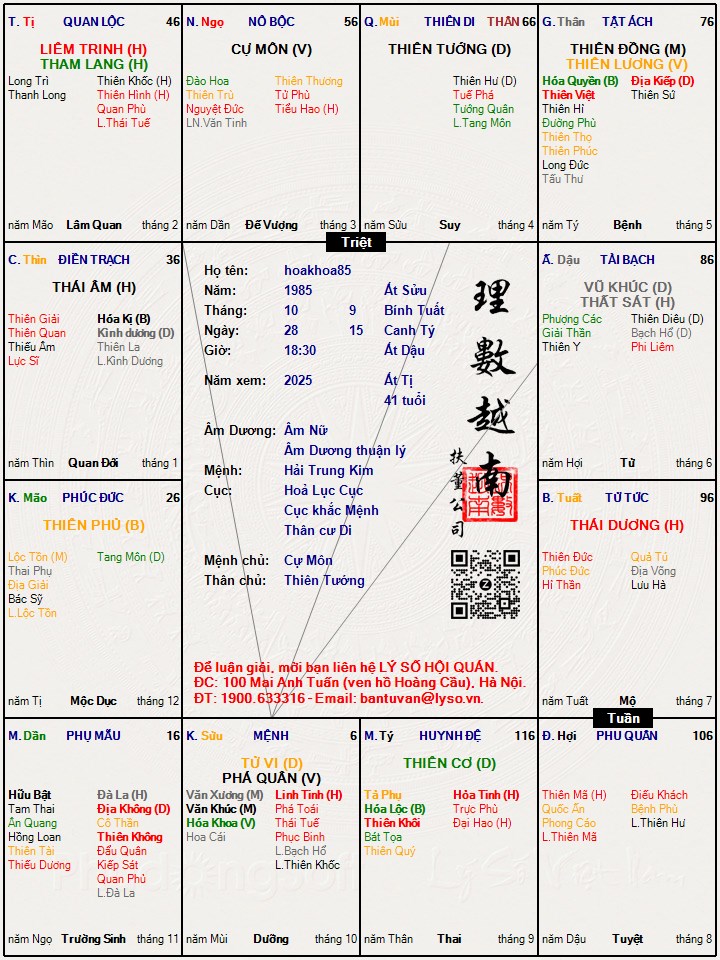 T. Tị QUAN LỘC 46
LIÊM TRINH (H)
THAM LANG (H)
Long Trì Thiên Khốc (H)
Thanh Long Thiên Hình (H)
Quan Phù
L.Thái Tuế
năm Mão Lâm Quan tháng 2
N. Ngọ NÔ BỘC 56
CỰ MÔN (V)
Đào Hoa Thiên Thương
Thiên Trù Tử Phù
Nguyệt Đức Tiểu Hao (H)
LN.Văn Tinh
năm Dần Đế Vượng tháng 3
Q. Mùi THIÊN DI THÂN 66
THIÊN TƯỚNG (D)
Thiên Hư (D)
Tuế Phá
Tướng Quân
L.Tang Môn
năm Sửu Suy tháng 4
G. Thân TẬT ÁCH 76
THIÊN ĐỒNG (M)
THIÊN LƯƠNG (V)
Hóa Quyền (B) Địa Kiếp (D)
Thiên Việt Thiên Sứ
Thiên Hỉ
Đường Phù
Thiên Thọ
Thiên Phúc
Long Đức
Tấu Thư
năm Tý Bệnh tháng 5
Triệt
C. Thìn ĐIỀN TRẠCH 36
THÁI ÂM (H)
Thiên Giải Hóa Kị (B)
Thiên Quan Kình dương (D)
Thiếu Âm Thiên La
Lực Sĩ L.Kình Dương
năm Thìn Quan Đới tháng 1
Họ tên: hoakhoa85
Năm: 1985 Ất Sửu
Tháng: 10 9 Bính Tuất
Ngày: 28 15 Canh Tý
Giờ: 18:30 Ất Dậu
Năm xem: 2025 Ất Tị
41 tuổi
Âm Dương: Âm Nữ
Âm Dương thuận lý
Mệnh: Hải Trung Kim
Cục: Hoả Lục Cục
Cục khắc Mệnh
Thân cư Di
Mệnh chủ: Cự Môn
Thân chủ: Thiên Tướng
理數越南
扶董公司
Để luận giải, mời bạn liên hệ LÝ SỐ HỘI QUÁN.
ĐC: 100 Mai Anh Tuấn (ven hồ Hoàng Cầu), Hà Nội.
ĐT: 1900.633316 - Email: bantuvan@lyso.vn.
Ấ. Dậu TÀI BẠCH 86
VŨ KHÚC (D)
THẤT SÁT (H)
Phượng Các Thiên Diêu (D)
Giải Thần Bạch Hổ (D)
Thiên Y Phi Liêm
năm Hợi Tử tháng 6
K. Mão PHÚC ĐỨC 26
THIÊN PHỦ (B)
Lộc Tồn (M) Tang Môn (D)
Thai Phụ
Địa Giải
Bác Sỹ
L.Lộc Tồn
năm Tị Mộc Dục tháng 12
B. Tuất TỬ TỨC 96
THÁI DƯƠNG (H)
Thiên Đức Quả Tú
Phúc Đức Địa Võng
Hỉ Thần Lưu Hà
năm Tuất Mộ tháng 7
Tuần
M. Dần PHỤ MẪU 16
Hữu Bật Đà La (H)
Tam Thai Địa Không (D)
Ân Quang Cô Thần
Hồng Loan Thiên Không
Thiên Tài Đẩu Quân
Thiếu Dương Kiếp Sát
Quan Phủ
L.Đà La
năm Ngọ Trường Sinh tháng 11
K. Sửu MỆNH 6
TỬ VI (D)
PHÁ QUÂN (V)
Văn Xương (M) Linh Tinh (H)
Văn Khúc (M) Phá Toái
Hóa Khoa (V) Thái Tuế
Hoa Cái Phục Binh
L.Bạch Hổ
L.Thiên Khốc
năm Mùi Dưỡng tháng 10
M. Tý HUYNH ĐỆ 116
THIÊN CƠ (D)
Tả Phụ Hỏa Tinh (H)
Hóa Lộc (B) Trực Phù
Thiên Khôi Đại Hao (H)
Bát Tọa
Thiên Quý
năm Thân Thai tháng 9
Đ. Hợi PHU QUÂN 106
Thiên Mã (H) Điếu Khách
Quốc Ấn Bệnh Phù
Phong Cáo L.Thiên Hư
L.Thiên Mã
năm Dậu Tuyệt tháng 8